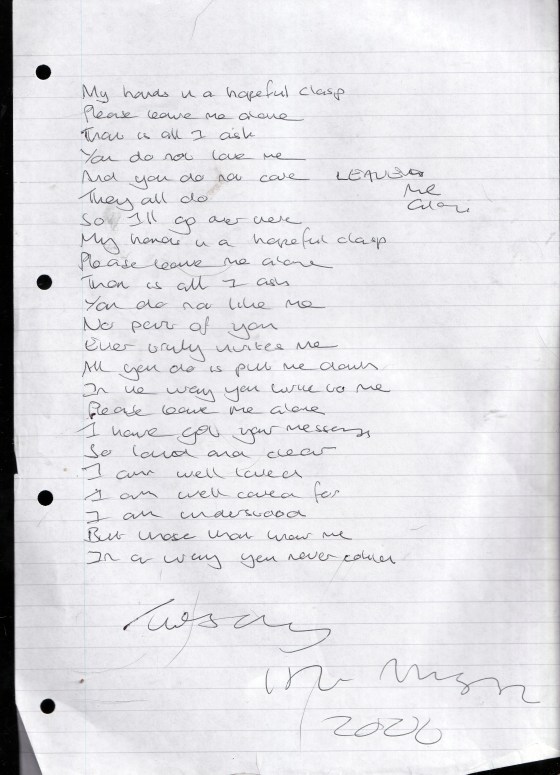 My hands in a hopeful clasp
Please leave me alone
That is all I ask
You do not love me
And you do not care LEAVE
me
alone
They all do
So I'll go over here
My hands in a hopeful clasp
Please leave me alone
That is all I ask
You do not like me
No part of you
Ever truly invites me
All you do is put me down
In the way you write to me
Please leave me alone
I have got your message
So loud and clear
I am well loved
I am well cared for
I am understood
But those that know me
In a way you never could
Tuesday
2020